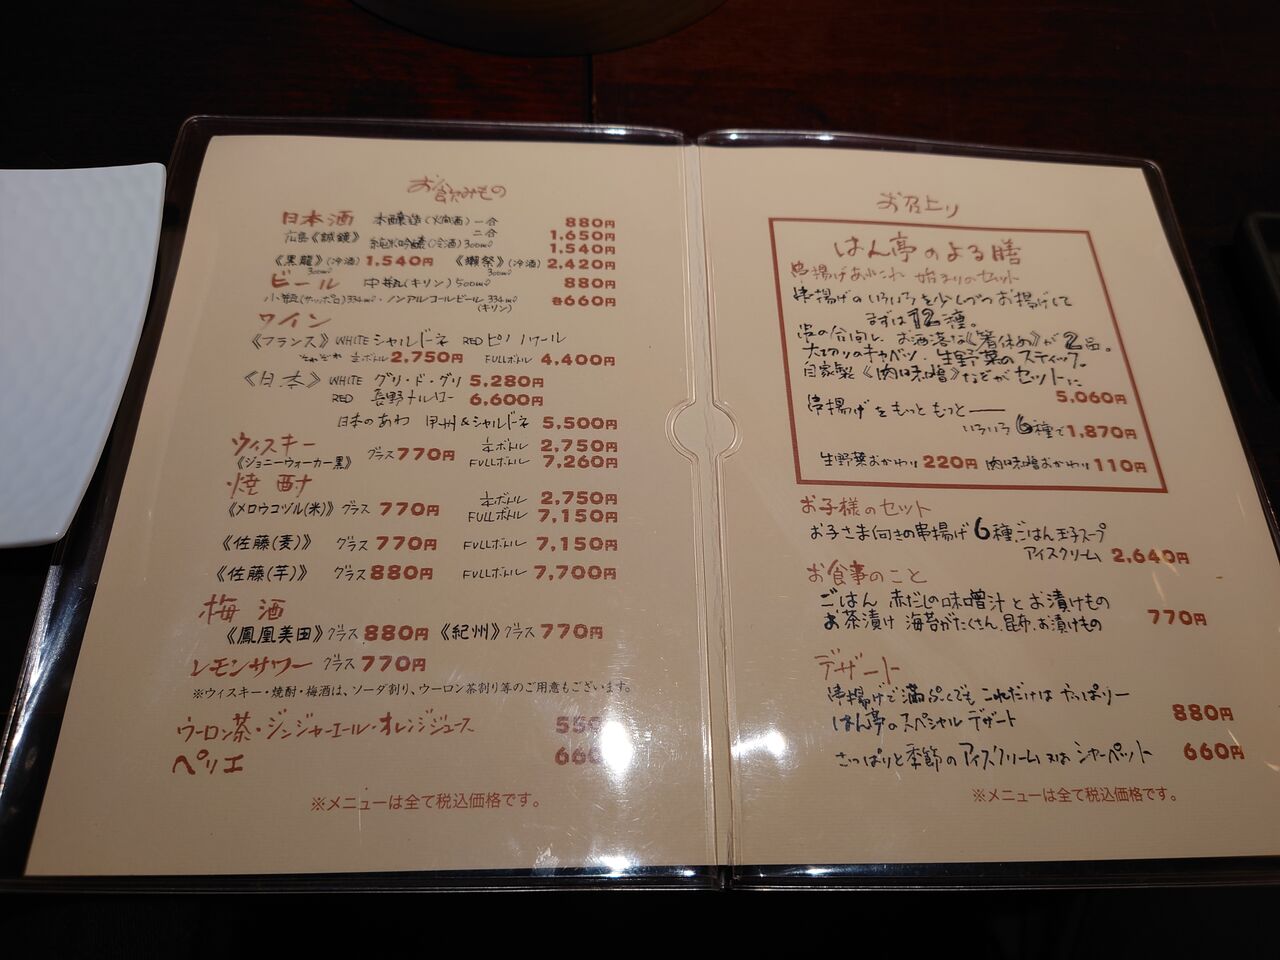 お飲みもの
日本酒 本醸造(火燗酒)一合 880円
広島《誠鏡》 二合 1,650円
純米吟醸(冷酒)300ml 1,540円
《黒龍》(冷酒)300ml 1,540円 《獺祭》(冷酒)300ml 2,420円
ビール 中瓶(キリン)500ml 880円
小瓶(サッポロ)334ml・ノンアルコールビール334ml(キリン) 各660円
ワイン
《フランス》WHITE シャルドネ RED ピノ ノワール
それぞれ 1/2ボトル 2,750円 FULLボトル 4,400円
《日本》WHITE グリ・ド・グリ 5,280円
RED 長野メルロー 6,600円
日本のあわ 甲州&シャルドネ 5,500円
ウィスキー 1/2ボトル 2,750円
《ジョニーウォーカー黒》 グラス 770円 FULLボトル 7,260円
焼酎
《メロウコヅル(米)》グラス 770円 1/2ボトル 2,750円
FULLボトル 7,150円
《佐藤(麦)》 グラス 770円 FULLボトル 7,150円
《佐藤(芋)》 グラス 880円 FULLボトル 7,700円
梅酒
《鳳凰美田》グラス 880円 《紀州》グラス 770円
レモンサワー グラス 770円
※ウィスキー・焼酎・梅酒は、ソーダ割り、ウーロン茶割り等のご用意もございます。
ウーロン茶・ジンジャーエール・オレンジジュース 550
ペリエ 660
※メニューは全て税込価格です。
お召上り
はん亭のよる膳
串揚げあれこれ 始まりのセット
串揚げのいろいろを少しづつお揚げして
まずは12種。
串の合間に、お洒落な《箸休め》が2品。
大切りのキャベツ、生野菜のスティック。
自家製《肉味噌》などがセットに
5,060円
串揚げをもっともっと――
いろいろ6種で1,870円
生野菜おかわり 220円 肉味噌おかわり 110円
お子様のセット
お子さま向きの串揚げ6種 ごはん 玉子スープ
アイスクリーム 2,640円
お食事のこと
ごはん 赤だしの味噌汁とお漬けもの
お茶漬け 海苔がたくさん、昆布、お漬けもの 770円
デザート
串揚げで満ぷくでも これだけは やっぱりー
はん亭のスペシャルデザート 880円
さっぱりと季節のアイスクリーム又はシャーベット 660円
※メニューは全て税込価格です。